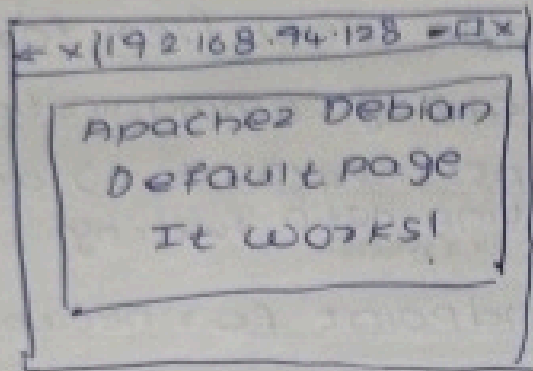 ← x 192.168.94.128 -□x
Apache2 Debian
Default page
It works!